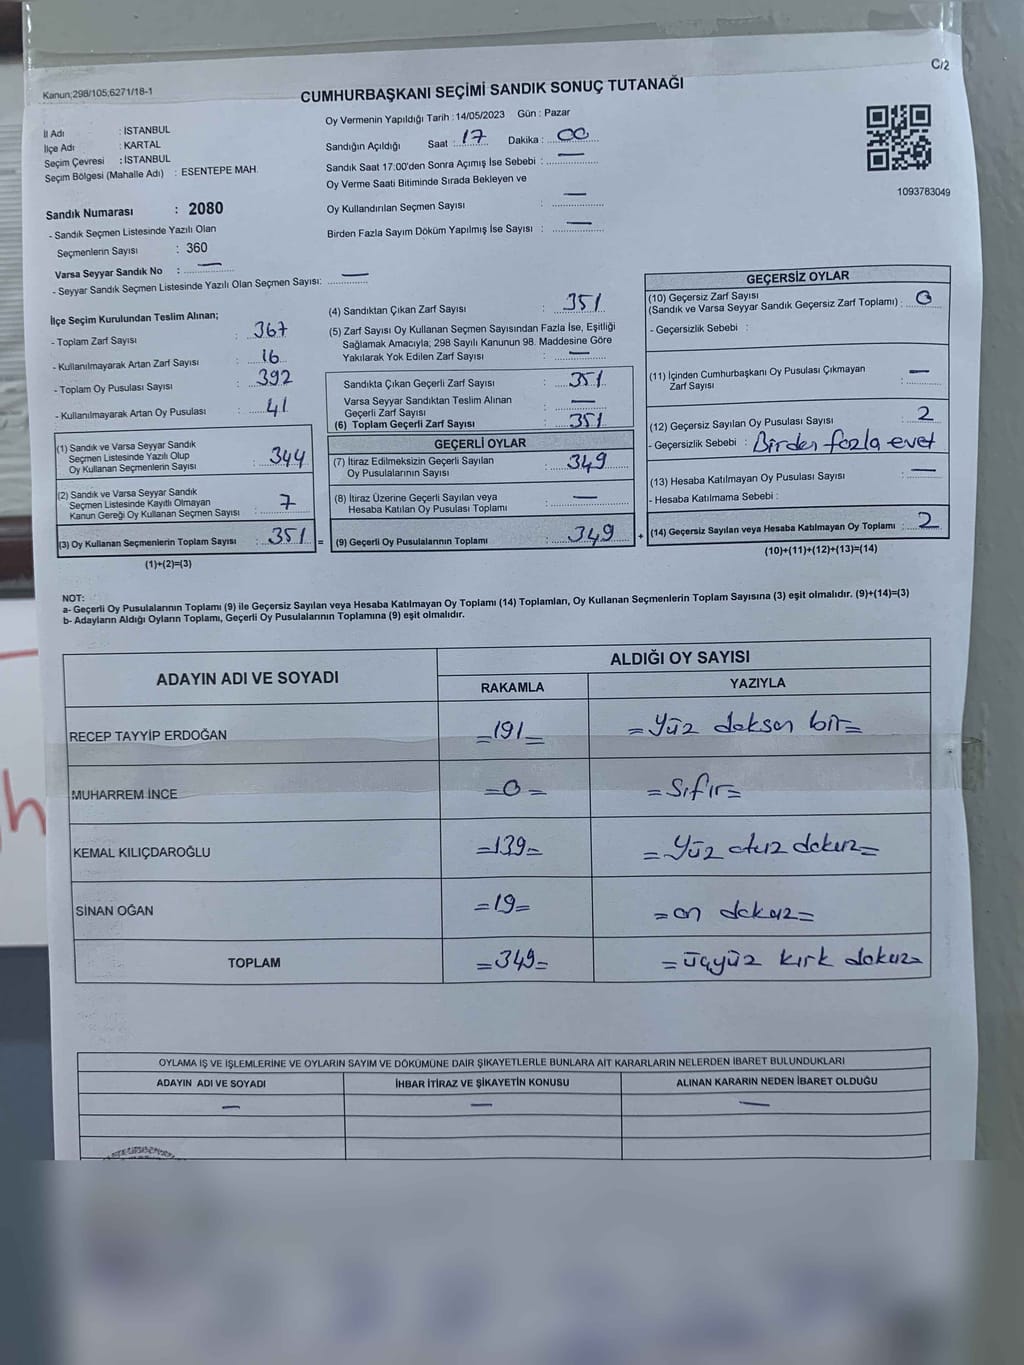 C/2
Kanun;298/105,6271/18-1
CUMHURBAŞKANI SEÇİMİ SANDIK SONUÇ TUTANAĞI
İl Adı : İSTANBUL
İlçe Adı : KARTAL
Seçim Çevresi : İSTANBUL
Seçim Bölgesi (Mahalle Adı) : ESENTEPE MAH.
Oy Vermenin Yapıldığı Tarih : 14/05/2023 Gün : Pazar
Sandığın Açıldığı Saat : 17 Dakika : 00
Sandık Saat 17:00'den Sonra Açımış İse Sebebi : —
Oy Verme Saati Bitiminde Sırada Bekleyen ve
Oy Kullandırılan Seçmen Sayısı : —
Birden Fazla Sayım Döküm Yapılmış İse Sayısı : —
1093763049
Sandık Numarası : 2080
- Sandık Seçmen Listesinde Yazılı Olan
Seçmenlerin Sayısı : 360
Varsa Seyyar Sandık No : —
- Seyyar Sandık Seçmen Listesinde Yazılı Olan Seçmen Sayısı: —
İlçe Seçim Kurulundan Teslim Alınan;
- Toplam Zarf Sayısı : 367
- Kullanılmayarak Artan Zarf Sayısı : 16
- Toplam Oy Pusulası Sayısı : 392
- Kullanılmayarak Artan Oy Pusulası : 41
(1) Sandık ve Varsa Seyyar Sandık
Seçmen Listesinde Yazılı Olup
Oy Kullanan Seçmenlerin Sayısı : 344
(2) Sandık ve Varsa Seyyar Sandık
Seçmen Listesinde Kayıtlı Olmayan
Kanun Gereği Oy Kullanan Seçmen Sayısı : 7
(3) Oy Kullanan Seçmenlerin Toplam Sayısı : 351 =
(1)+(2)=(3)
(4) Sandıktan Çıkan Zarf Sayısı : 351
(5) Zarf Sayısı Oy Kullanan Seçmen Sayısından Fazla İse, Eşitliği
Sağlamak Amacıyla; 298 Sayılı Kanunun 98. Maddesine Göre
Yakılarak Yok Edilen Zarf Sayısı : —
Sandıkta Çıkan Geçerli Zarf Sayısı : 351
Varsa Seyyar Sandıktan Teslim Alınan
Geçerli Zarf Sayısı : —
(6) Toplam Geçerli Zarf Sayısı : 351
GEÇERLİ OYLAR
(7) İtiraz Edilmeksizin Geçerli Sayılan
Oy Pusulalarının Sayısı : 349
(8) İtiraz Üzerine Geçerli Sayılan veya
Hesaba Katılan Oy Pusulası Toplamı : —
(9) Geçerli Oy Pusulalarının Toplamı : 349 +
GEÇERSİZ OYLAR
(10) Geçersiz Zarf Sayısı
(Sandık ve Varsa Seyyar Sandık Geçersiz Zarf Toplamı) : 0
- Geçersizlik Sebebi :
(11) İçinden Cumhurbaşkanı Oy Pusulası Çıkmayan
Zarf Sayısı : —
(12) Geçersiz Sayılan Oy Pusulası Sayısı : 2
- Geçersizlik Sebebi : Birden fazla evet
(13) Hesaba Katılmayan Oy Pusulası Sayısı : —
- Hesaba Katılmama Sebebi :
(14) Geçersiz Sayılan veya Hesaba Katılmayan Oy Toplamı : 2
(10)+(11)+(12)+(13)=(14)
NOT:
a- Geçerli Oy Pusulalarının Toplamı (9) ile Geçersiz Sayılan veya Hesaba Katılmayan Oy Toplamı (14) Toplamları, Oy Kullanan Seçmenlerin Toplam Sayısına (3) eşit olmalıdır. (9)+(14)=(3)
b- Adayların Aldığı Oyların Toplamı, Geçerli Oy Pusulalarının Toplamına (9) eşit olmalıdır.
ADAYIN ADI VE SOYADI ALDIĞI OY SAYISI
RAKAMLA YAZIYLA
RECEP TAYYİP ERDOĞAN =191= =Yüz doksan bir=
MUHARREM İNCE =0= =Sıfır=
KEMAL KILIÇDAROĞLU =139= =Yüz otuz dokuz=
SİNAN OĞAN =19= =on dokuz=
TOPLAM =349= =üçyüz kırk dokuz=
OYLAMA İŞ VE İŞLEMLERİNE VE OYLARIN SAYIM VE DÖKÜMÜNE DAİR ŞİKAYETLERLE BUNLARA AİT KARARLARIN NELERDEN İBARET BULUNDUKLARI
ADAYIN ADI VE SOYADI İHBAR İTİRAZ VE ŞİKAYETİN KONUSU ALINAN KARARIN NEDEN İBARET OLDUĞU
— — —